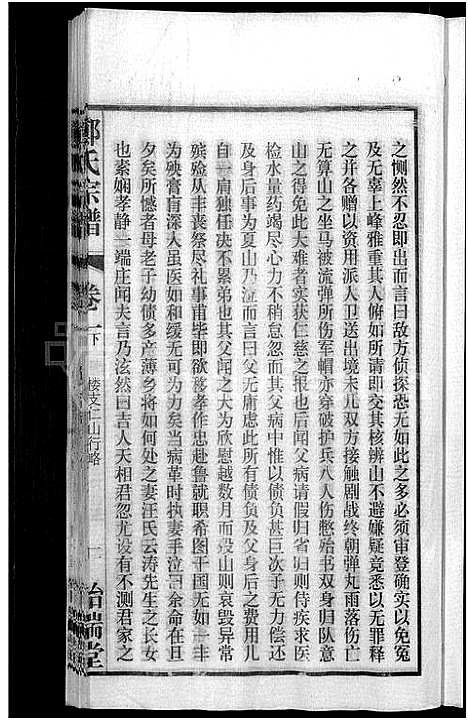 之恻然不忍即出而言曰敌方侦探恐无如此之多必须审登确实以免冤
及无辜上峰雅重其人俯如所请即交其核辨山不避嫌疑竟悉以无罪释
之并各赠以资用派人卫送出境未几双方接触剧战终朝弹丸雨落伤亡
无算山之坐马被流弹所伤军帽亦穿破护兵八人伤弊殆书双身归队意
山之得免此大难者实获仁慈之报也后闻父病请假归省归则侍疾求医
检水量药竭尽心力不稍怠忽而其父病中惟以债负甚巨次子无力偿还
及身后事为夏山乃泣而言曰父无庸虑此所有债负及父身后之费用儿
自一肩独任决不累弟也其父闻之大为欣慰越数月而殁山则哀毁异常
殡殓从丰丧祭尽礼事甫毕即欲移孝作忠赴鲁就职希图干国无如一非
为殃膏肓深入虽医如和缓无可为力矣当病革时执妻手泣曰余命在旦
夕矣所憾者母老子幼债多产薄乡将如何处之妻汪氏云涛先生之长女
也素娴孝静一端庄闻夫言乃泫然曰吉人天相君忽尤设有不测君家之
郑氏宗谱
卷一下
楼支仁山行略
一
治端堂